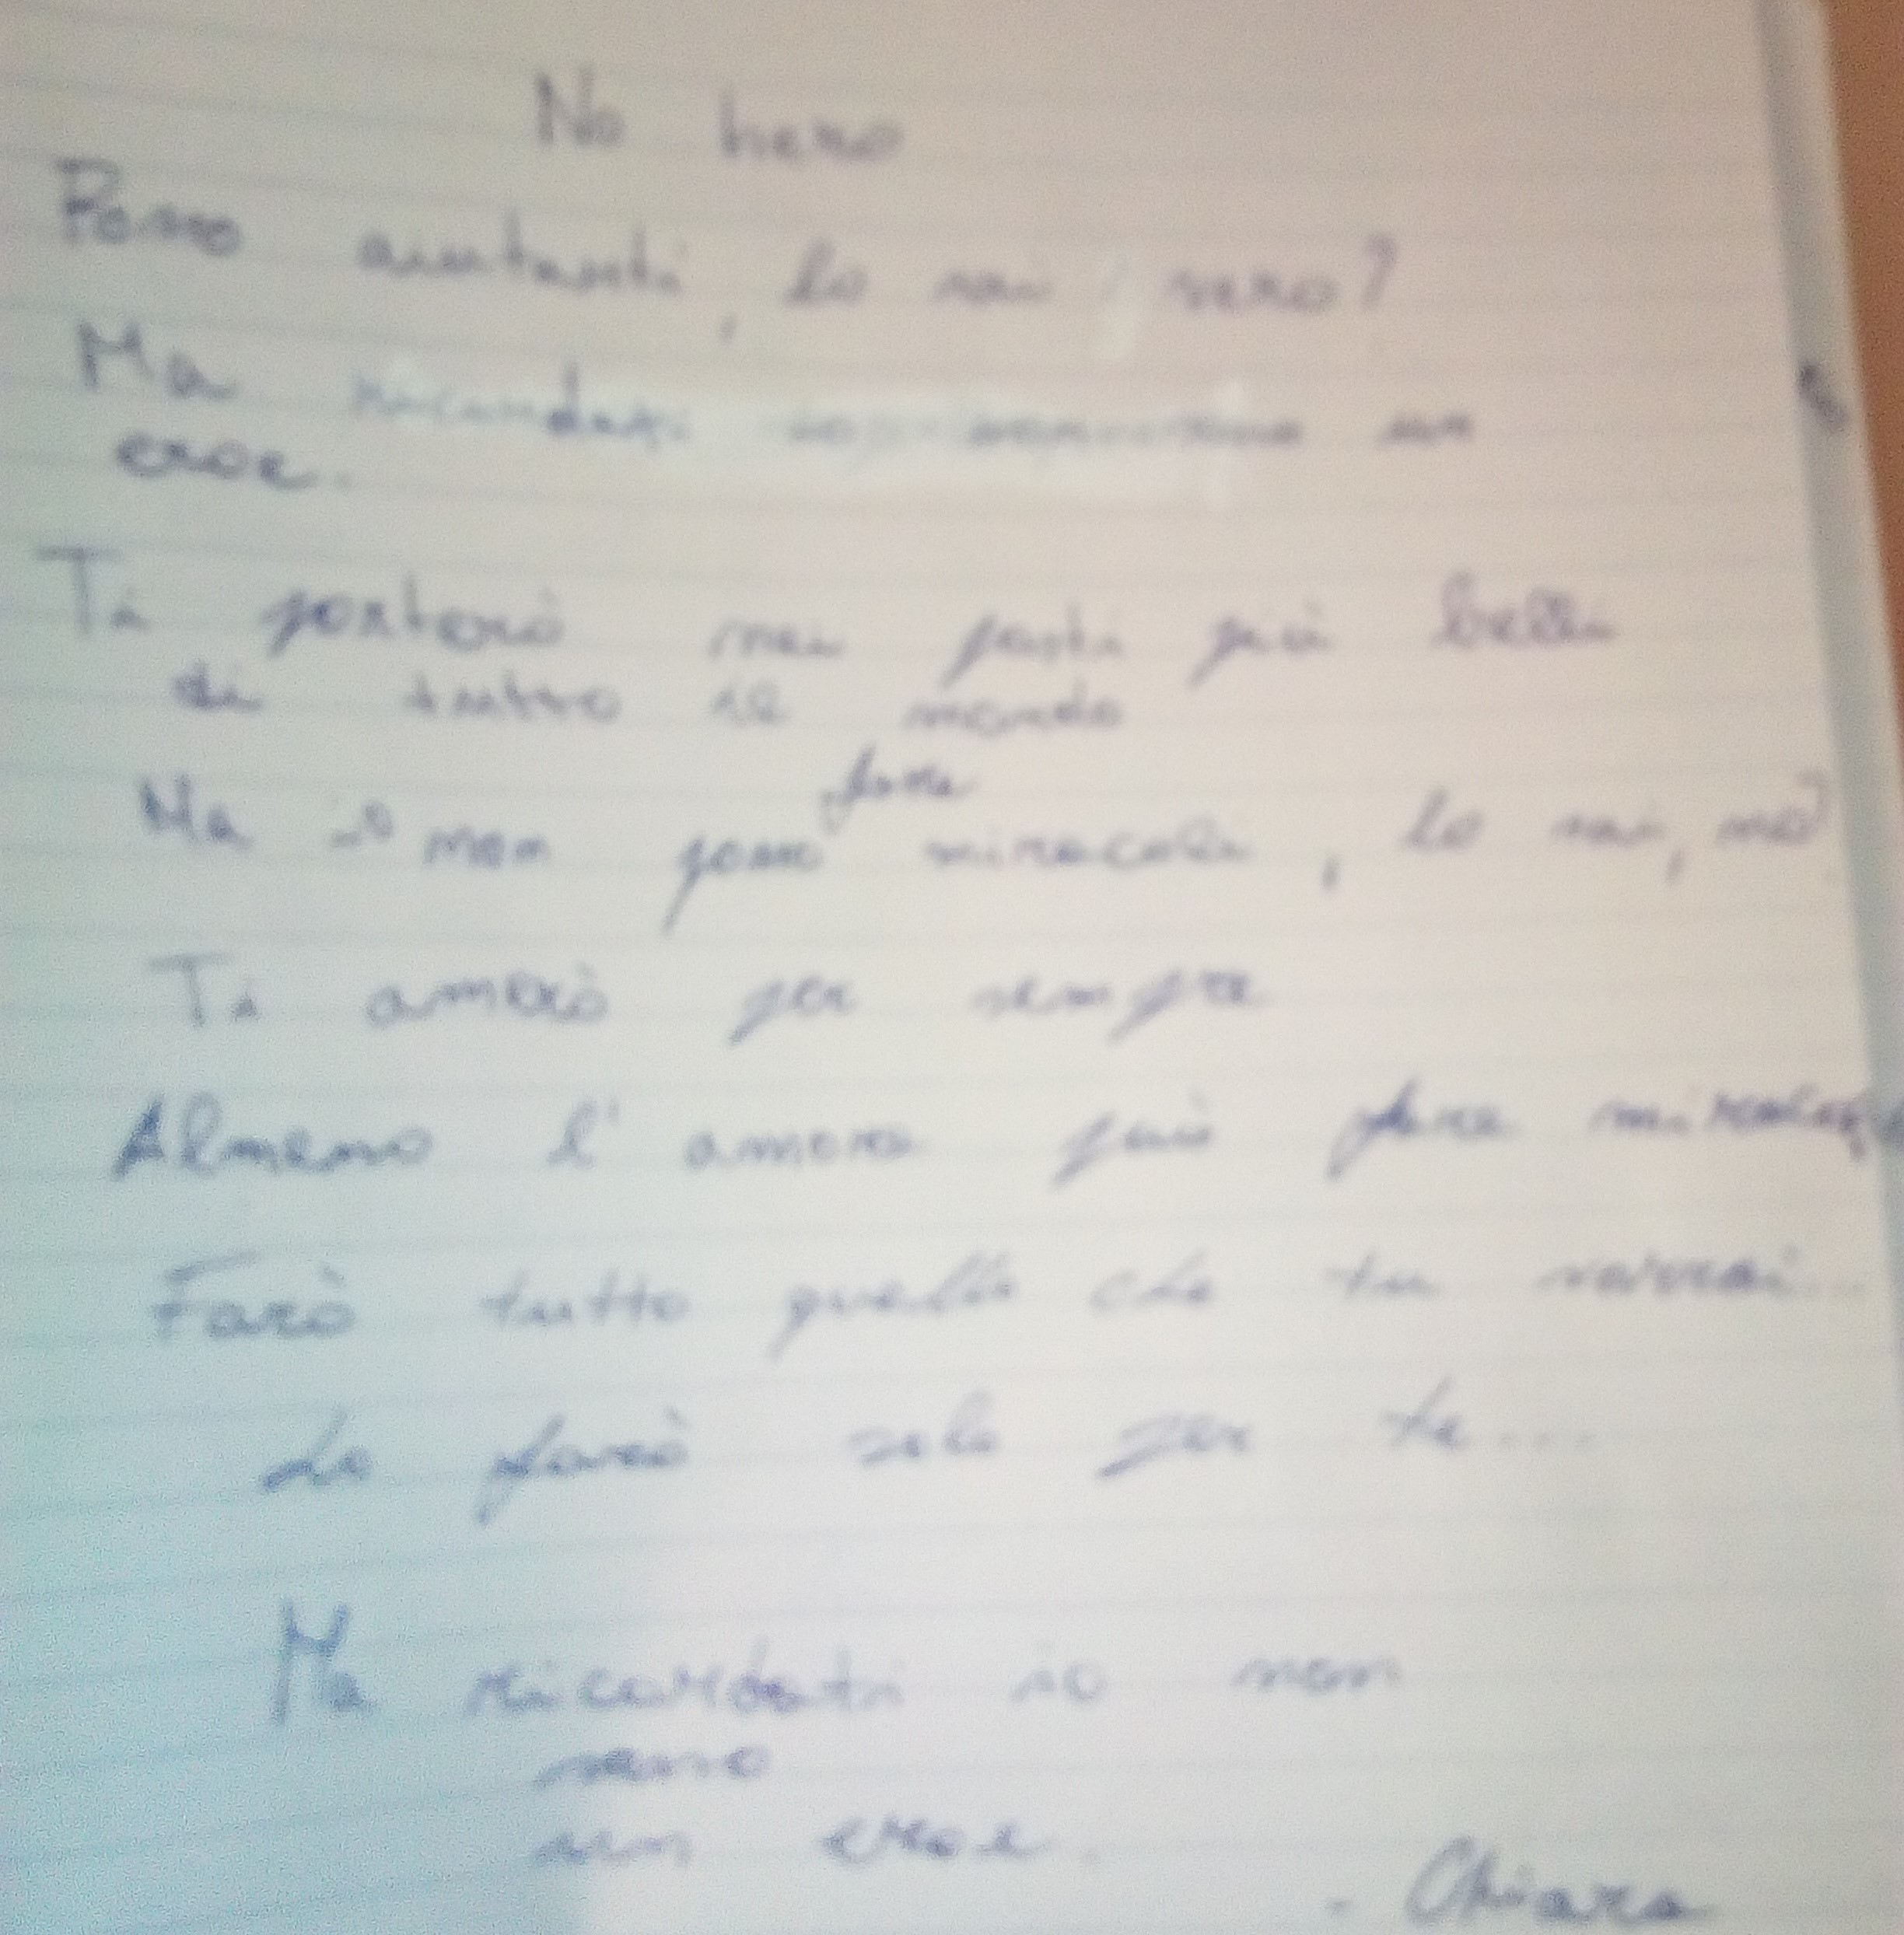 No hero
Posso aiutarti, lo sai, vero?
Ma ricordati io non sono un
eroe.
Ti porterò nei posti più belli
di tutto il mondo
fare
Ma io non posso miracoli, lo sai, no?
Ti amerò per sempre
Almeno l'amore può fare miracoli
Farò tutto quello che tu vorrai
Lo farò solo per te...
Ma ricordati io non
sono
un eroe.
- Chiara